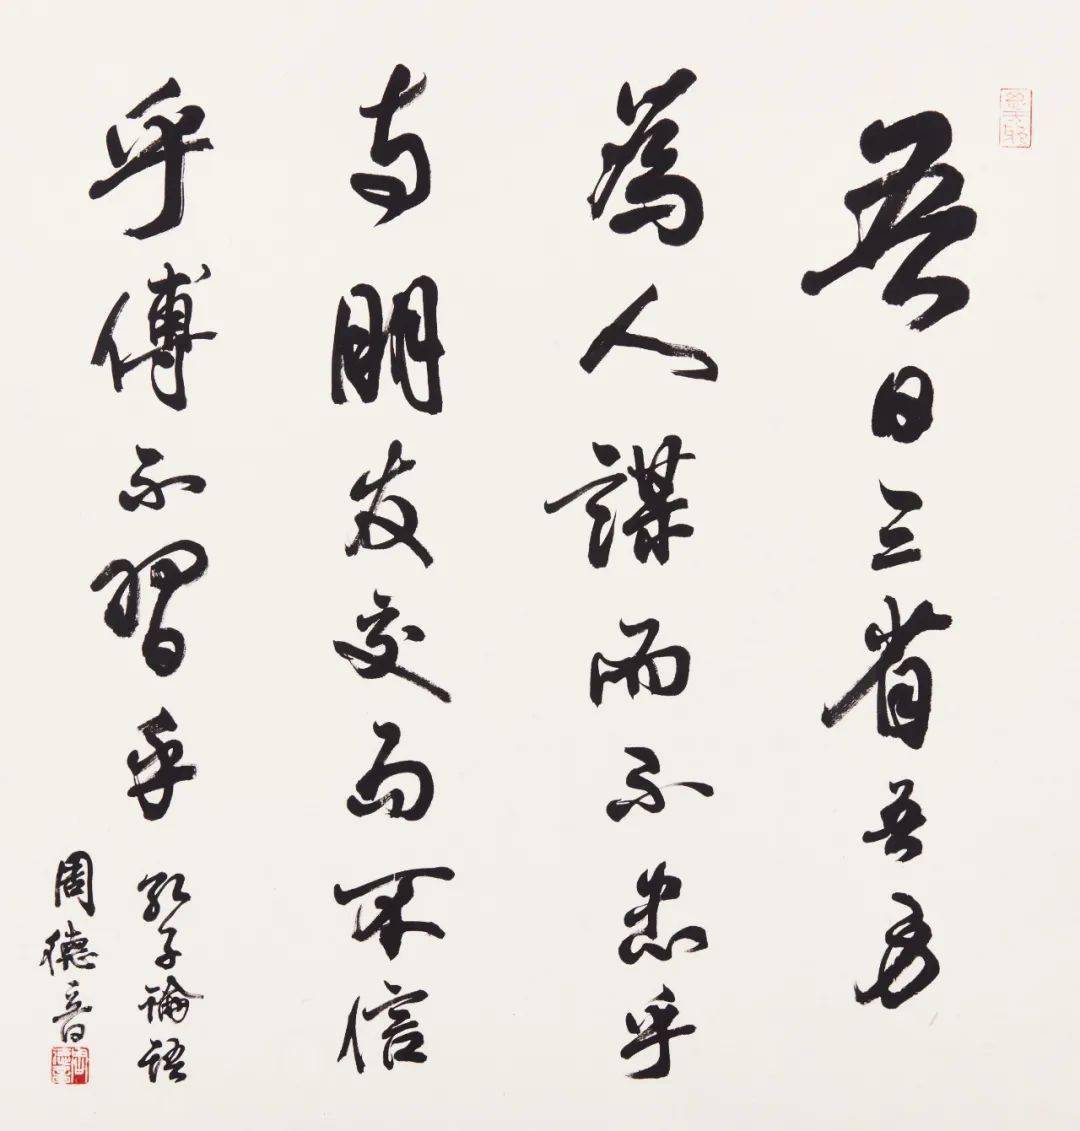 吾日三省吾身
為人謀而不忠乎
与朋友交而不信
乎傳不習乎 孔子論語
周德音